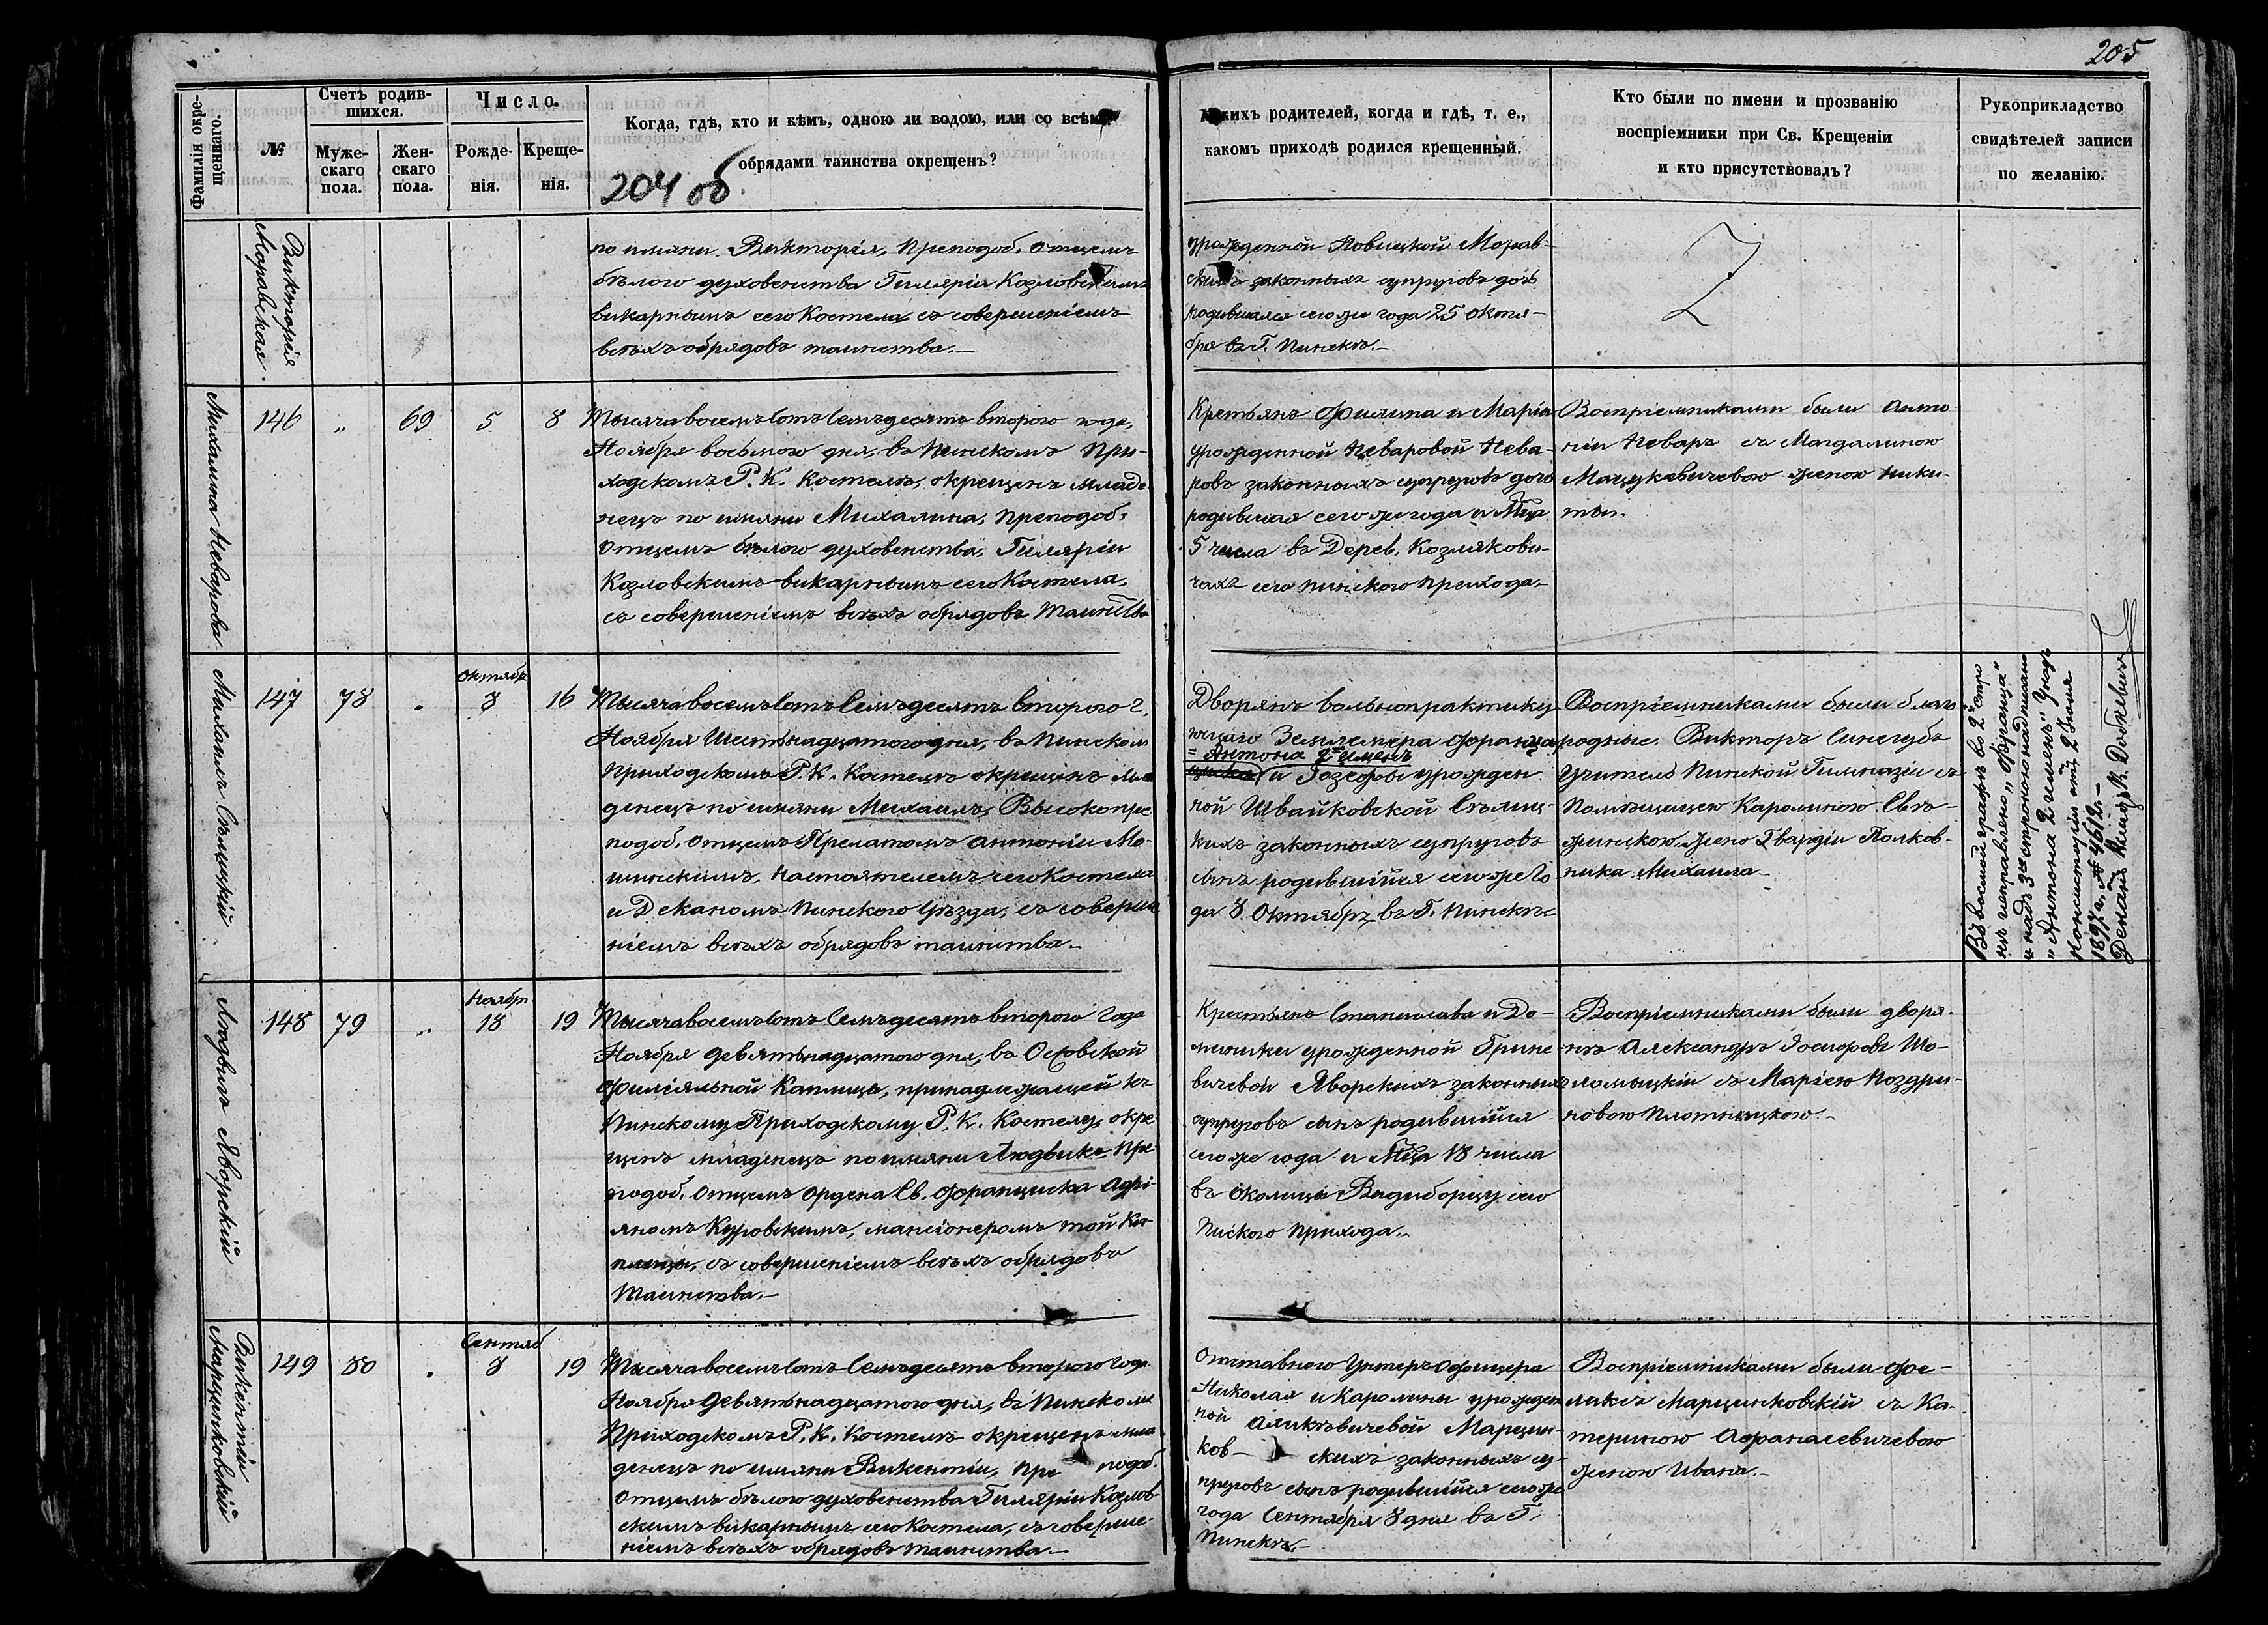 205
Фамилія окре-
щеннаго.
№
Счетъ родив-
шихся.
Муже-
скаго
пола.
Жен-
скаго
пола.
Число.
Рожде-
нія.
Креще-
нія.
Когда, гдѣ, кто и кѣмъ, одною ли водою, или со всѣми
обрядами таинства окрещенъ?
204 об
какихъ родителей, когда и гдѣ, т. е.,
какомъ приходѣ родился крещенный.
Кто были по имени и прозванію
воспріемники при Св. Крещеніи
и кто присутствовалъ?
Рукоприкладство
свидѣтелей записи
по желанію.
Викторія
Моравская
по имяни Викторія, Преподоб. Отцемъ
бѣлого духовенства Гиляріи Козловскимъ
викарнымъ сего Костела съ совершеніемъ
всѣхъ обрядовъ таинства.—
урожденной Новицкой Морав-
скихъ законныхъ супруговъ дочь
родившаяся сего же года 25 октя-
бря въ Г. Пинскѣ.—
Михалина Неварова
146
„
69
5
8
Тысяча восемъ сотъ Семъдесятъ второго года,
Ноября восьмого дня, въ Пинскомъ При-
ходскомъ Р. К. Костелѣ, окрещенъ младе
нецъ по имяни Михалина, Преподоб.
Отцемъ бѣлого духовенства, Гиляріи
Козловскимъ викарнымъ сего Костела,
съ совершеніемъ всѣхъ обрядовъ Таинства
Крестьянъ Филипа и Маріи
урожденной Неваровой Нева-
ровъ законныхъ супруговъ дочь
родившая сего же года и Мца
5 числа въ Дерев. Козляковиi-
чахъ сего Пинского Прихода.—
Воспріемниками были Анто
ній Неваръ съ Магдалиною
Мацукевичевою женою Ники-
ты.
Михаилъ Сѣлицкій
147
78
„
Октябр
8
16
Тысяча восемъ сотъ Семъдесятъ второго г.
Ноября Шестьнадцатого дня, въ Пинском
Приходскомъ Р. К. Костелѣ окрещенъ мла
денецъ по имяни Михаилъ, Высокопре
подоб. Отцемъ Прелатомъ Антоніи Мо-
шинскимъ, Настоятелемъ сего Костела
и Деканомъ Пинского Уѣзда, съ соверше
ніемъ всѣхъ обрядовъ таинства.—
Дворянъ вольнопрактику
ющаго Землемѣра Франца
= Антона 2 именъ
и Іозефы урожден
ной Швайковской Сѣлиц-
кихъ законныхъ супруговъ
сынъ родившійся сего же Го
да 8 Октябръ въ Г. Пинскѣ
Воспріемниками были благо
родные: Викторъ Синегубъ
Учитель Пинской Гимназіи съ
Помѣщицею Каролиною Свѣ-
жинскою, жено Гвардіи Полков-
ника Михаила.—
Въ восмой графѣ въ 2й стро
кѣ исправлено „Франца"
и надъ 3ю строкою надписано
„Антона 2 именъ" Указъ
Консисторіи отъ 2 Іюля
1897 г. № 4612.—
Деканъ Ксендз К. Добкевичъ
Людвикъ Яворскій
148
79
„
Ноябр.
18
19
Тысяча восемъ сотъ Семъдесятъ второго Года
Ноября девятьнадцатого дня, въ Осовской
Филіяльной Каплицы, принадлежащей къ
Пинскому Приходскому Р. К. Костелу, окре
щенъ младенецъ по имяни Людвикъ, Пре
подоб. Отцемъ Ордена Св. Франциска Адрі
яномъ Куровскимъ, мансіонеромъ той Ка-
плицы, съ совершеніемъ всѣхъ обрядовъ
Таинства.—
Крестьянъ Станислава и До-
миники урожденной Грине
вичевой Яворскихъ законныхъ
супруговъ сынъ родившійся
сего же года и Мца 18 числа
въ околицы Видиборцу сего
Пинского Прихода.—
Воспріемниками были дворя-
нъ Александръ Іосифовъ Шо-
ломыцкій съ Маріею Поздри-
новою Плотницкою.—
Викентій
Марцинковскій
149
80
„
Сентяб
8
19
Тысяча восемъ сотъ Семъдесятъ второго Года
Ноября Девятьнадцатого дня, въ Пинском
Приходскомъ Р. К. Костелѣ окрещенъ мла
денецъ по имяни Викентіи, Пре подоб.
Отцемъ бѣлого духовенства Гиляріи Козлов-
скимъ викарнымъ сего Костела, съ соверше-
ніемъ всѣхъ обрядовъ таинства.—
Отставного Унтеръ Офицера
Николая и Каролины урожден
ной Ольхѣвичевой Марцин-
ков— скихъ законныхъ су-
пруговъ сынъ родившійся сего же
года Сентября 8 дня въ Г.
Пинскѣ.—
Воспріемниками были Фе-
ликсъ Марцинковскій съ Ка-
териною Афанасевичевою
женою Ивана.—